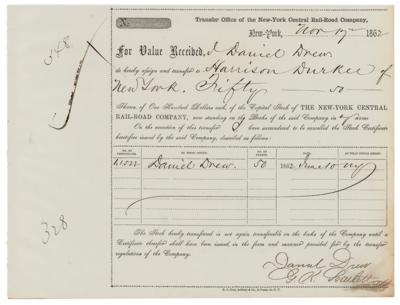 Transfer Office of the New-York Central Rail-Road Company,
No.
New-York, Nov 17 1862
For Value Received, I Daniel Drew
do hereby assign and transfer to Harrison Durkee of
New York. Fifty — 50 —
Shares of One Hundred Dollars each, of the Capital Stock of THE NEW-YORK CENTRAL
RAIL-ROAD COMPANY, now standing on the Books of the said Company in my name
On the execution of this transfer I have surrendered to be cancelled the Stock Certificate
heretofore issued by the said Company, described as follows:
NO. OF CERTIFICATE. IN WHOSE NAME. NO. OF SHARES. DATE. AT WHAT OFFICE ISSUED.
Daniel Drew. 50 1862 June 10 NY
The Stock hereby transferred is not again transferable on the books of the Company until a
Certificate therefor shall have been issued, in the form and manner provided for by the transfer
regulations of the Company.
Daniel Drew
348
328